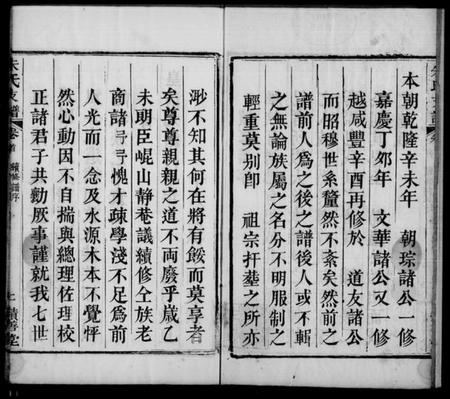 本朝乾隆辛未年　朝琮諸公一修
嘉慶丁卯年　文華諸公又一修
越咸豐辛酉再修於　道友諸公
而昭穆世系釐然不紊矣然前之
譜前人為之後之譜後人或不輯
之無論族屬之名分不明服制之
輕重莫别卽　祖宗扞塟之所亦
渺不知其何在將有餒而莫享者
矣尊尊親親之道不兩廢乎歲乙
未明臣崐山静菴議續修仝族老
商諸予予愧才疎學淺不足為前
人光而一念及水源木本不覺怦
然心動因不自揣與總理佐理校
正諸君子共勷厥事謹就我七世
朱氏支譜　卷首　續修譜序　七